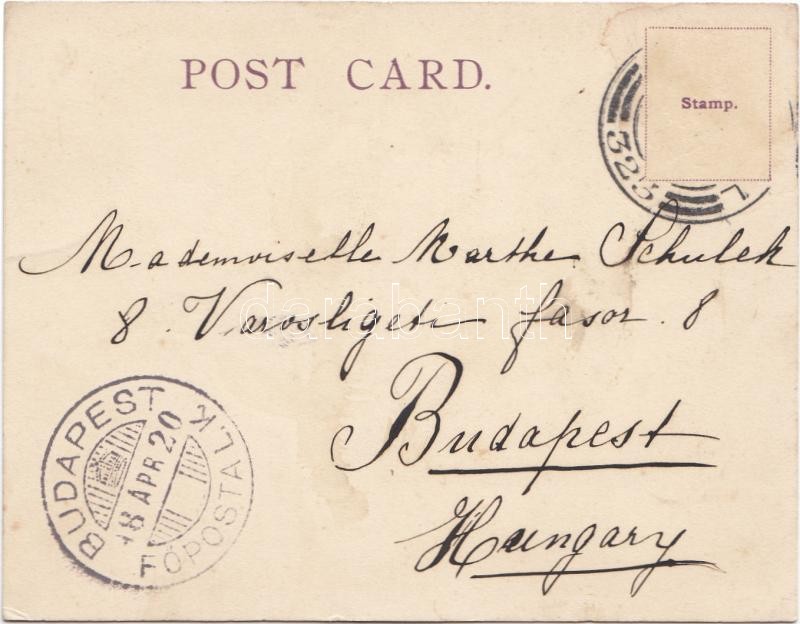 POST CARD.
Stamp.
325
L
Mademoiselle Marthe Schulek
8. Varosligeti fasor. 8
darabanth
Budapest
Hungary
BUDAPEST
APR 20
FŐPOSTA L.K